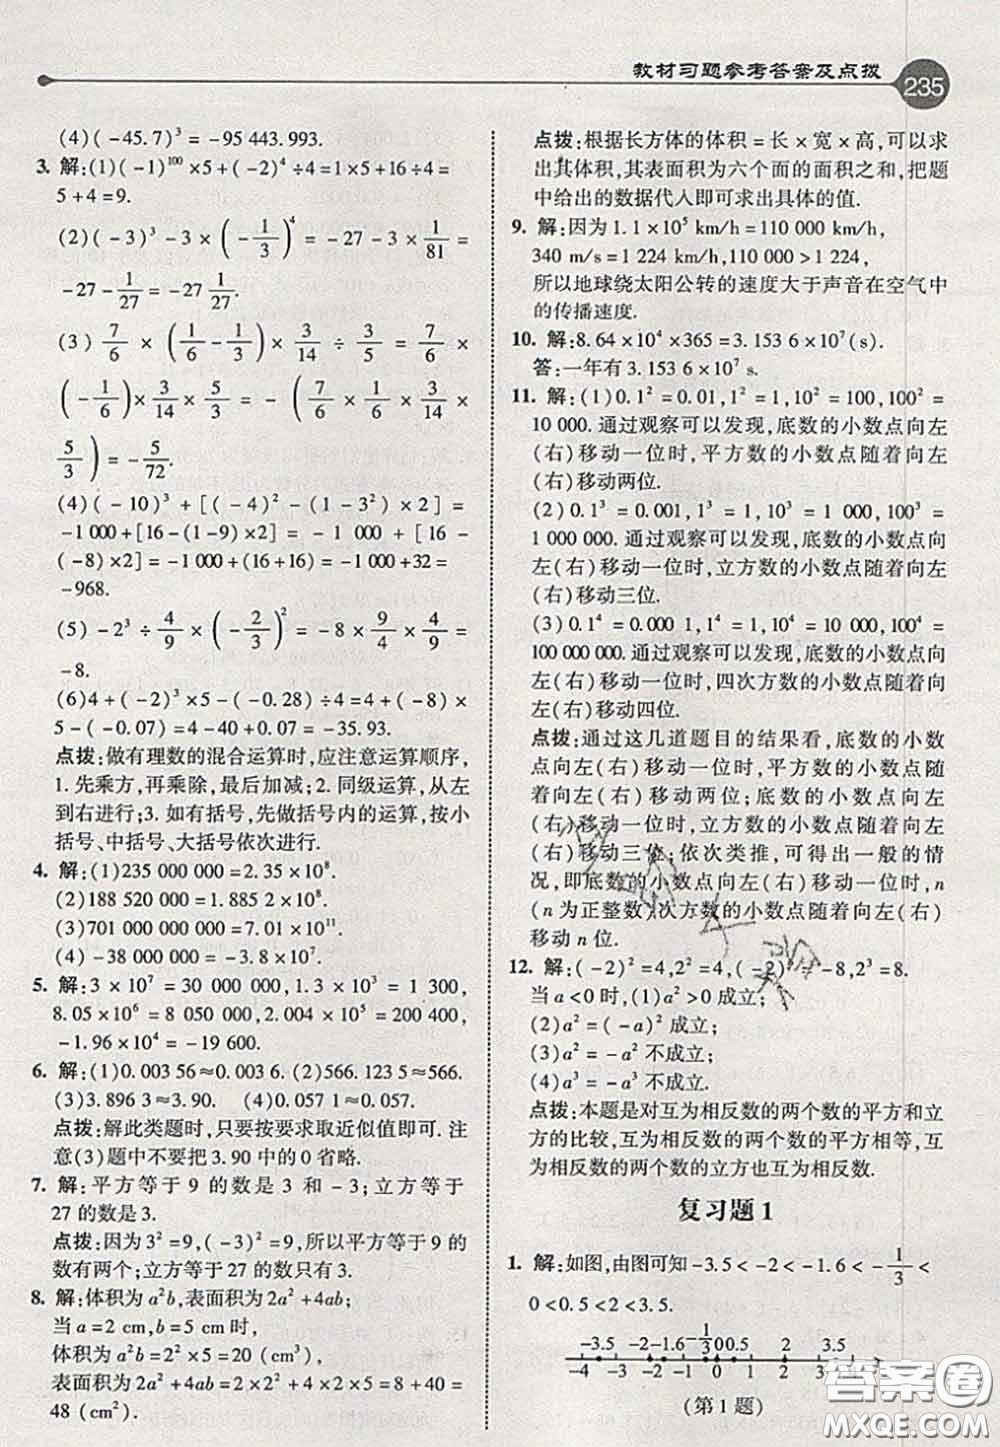 教材习题参考答案及点拨
235
(4)(-45.7)³=-95 443.993.
3. 解:(1)(-1)¹⁰⁰×5+(-2)⁴÷4=1×5+16÷4=
5+4=9.
(2)(-3)³-3×(-1/3)⁴=-27-3×1/81=
-27-1/27=-27 1/27.
(3) 7/6×(1/6-1/3)×3/14÷3/5=7/6×
(-1/6)×3/14×5/3=(7/6×3/14)×(-1/6×
5/3)=-5/72.
(4)(-10)³+[(-4)²-(1-3²)×2]=
-1 000+[16-(1-9)×2]=-1 000+[16-
(-8)×2]=-1 000+(16+16)=-1 000+32=
-968.
(5)-2³÷4/9×(-2/3)²=-8×9/4×4/9=
-8.
(6)4+(-2)³×5-(-0.28)÷4=4+(-8)×
5-(-0.07)=4-40+0.07=-35.93.
点拨:做有理数的混合运算时,应注意运算顺序,
1. 先乘方,再乘除,最后加减;2. 同级运算,从左
到右进行;3. 如有括号,先做括号内的运算,按小
括号、中括号、大括号依次进行.
4. 解:(1)235 000 000=2.35×10⁸.
(2)188 520 000=1.885 2×10⁸.
(3)701 000 000 000=7.01×10¹¹.
(4)-38 000 000=-3.8×10⁷.
5. 解:3×10⁷=30 000 000,1.3×10³=1 300,
8.05×10⁶=8 050 000,2.004×10⁵=200 400,
-1.96×10⁴=-19 600.
6. 解:(1)0.003 56≈0.003 6. (2)566.123 5≈566.
(3)3.896 3≈3.90. (4)0.057 1≈0.057.
点拨:解此类题时,只要按要求取近似值即可. 注
意(3)题中不要把 3.90 中的 0 省略.
7. 解:平方等于 9 的数是 3 和-3;立方等于
27 的数是 3.
点拨:因为 3²=9,(-3)²=9,所以平方等于 9 的
数有两个;立方等于 27 的数只有 3.
8. 解:体积为 a²b,表面积为 2a²+4ab;
当 a=2 cm,b=5 cm 时,
体积为 a²b=2²×5=20 (cm³),
表面积为 2a²+4ab=2×2²+4×2×5=8+40=
48 (cm²).
点拨:根据长方体的体积=长×宽×高,可以求
出其体积,其表面积为六个面的面积之和,把题
中给出的数据代人即可求出具体的值.
9. 解:因为 1.1×10⁵ km/h=110 000 km/h,
340 m/s=1 224 km/h,110 000>1 224,
所以地球绕太阳公转的速度大于声音在空气中
的传播速度.
10. 解:8.64×10⁴×365=3.153 6×10⁷(s).
答:一年有 3.153 6×10⁷ s.
11. 解:(1)0.1²=0.01,1²=1,10²=100,100²=
10 000. 通过观察可以发现,底数的小数点向左
(右)移动一位时,平方数的小数点随着向左
(右)移动两位.
(2)0.1³=0.001,1³=1,10³=1 000,100³=
1 000 000. 通过观察可以发现,底数的小数点向
左(右)移动一位时,立方数的小数点随着向左
(右)移动三位.
(3)0.1⁴=0.000 1,1⁴=1,10⁴=10 000,100⁴=
100 000 000. 通过观察可以发现,底数的小数点向
左(右)移动一位时,四次方数的小数点随着向
左(右)移动四位.
点拨:通过这几道题目的结果看,底数的小数
点向左(右)移动一位时,平方数的小数点随
着向左(右)移动两位;底数的小数点向左
(右)移动一位时,立方数的小数点随着向左
(右)移动三位;依次类推,可得出一般的情
况,即底数的小数点向左(右)移动一位时,n
(n 为正整数)次方数的小数点随着向左(右)
移动 n 位.
12. 解:(-2)²=4,2²=4,(-2)³=-8,2³=8.
当 a<0 时,(1)a²>0 成立;
(2)a²=(-a)² 成立;
(3)a²=-a² 不成立;
(4)a³=-a³ 不成立.
点拨:本题是对互为相反数的两个数的平方和立
方的比较,互为相反数的两个数的平方相等,互
为相反数的两个数的立方也互为相反数.
复习题 1
1. 解:如图,由图可知-3.5<-2<-1.6<-1/3<
0<0.5<2<3.5.
-3.5 -2 -1.6 -1/3 0 0.5 2 3.5
-4 -3 -2 -1 0 1 2 3 4
(第 1 题)
答案圈
MXQE.COM